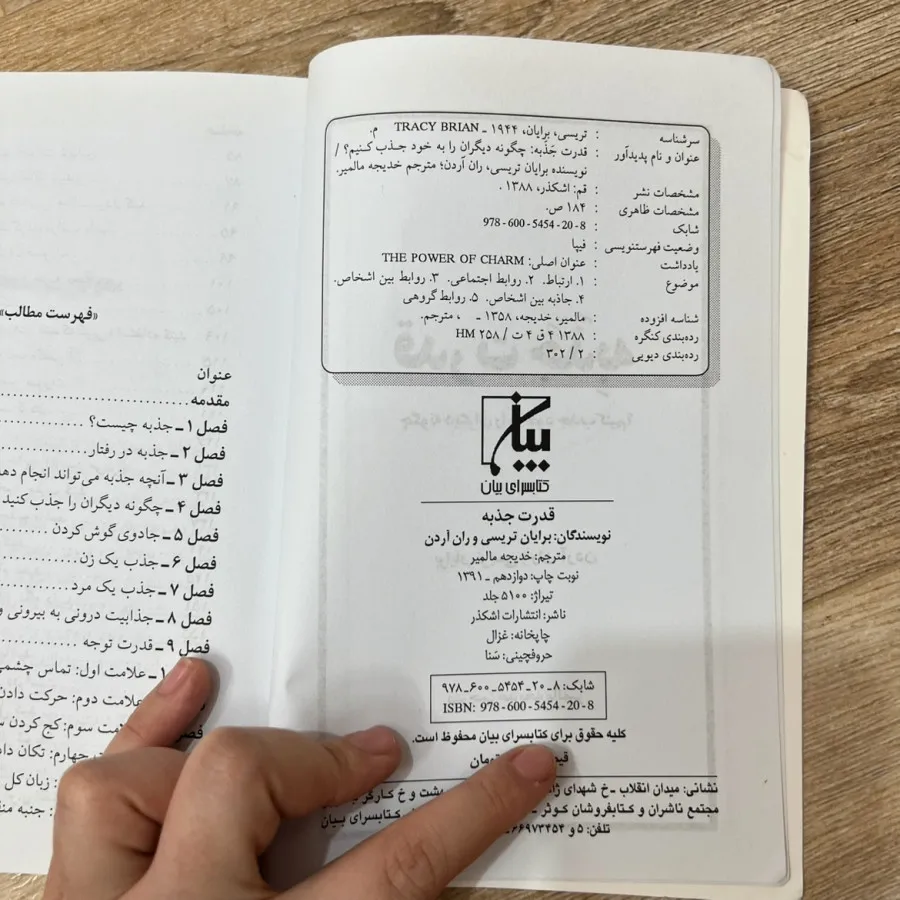 سرشناسه : تریسی، برایان، ۱۹۴۴ ـ TRACY BRIAN م.
عنوان و نام پدیدآور : قدرت جَذبه: چگونه دیگران را به خود جذب کنیم؟ /
نویسنده برایان تریسی، ران آردن؛ مترجم خدیجه مالمیر.
مشخصات نشر : قم: اشکذر، ۱۳۸۸ .
مشخصات ظاهری : ۱۸۴ ص.
شابک : 978-600-5454-20-8
وضعیت فهرستنویسی : فیپا
یادداشت : عنوان اصلی: THE POWER OF CHARM
موضوع : ۱. ارتباط. ۲. روابط اجتماعی. ۳. روابط بین اشخاص.
۴. جاذبه بین اشخاص. ۵. روابط گروهی
شناسه افزوده : مالمیر، خدیجه، ۱۳۵۸ـ ، مترجم.
رده‌بندی کنگره : ۱۳۸۸ ۴ ق ۴ ت / ۲۵۸ HM
رده‌بندی دیویی : ۲ / ۳۰۲
بیان
کتابسرای بیان
قدرت جذبه
نویسندگان: برایان تریسی و ران آردن
مترجم: خدیجه مالمیر
نوبت چاپ: دوازدهم ـ ۱۳۹۱
تیراژ: ۵۱۰۰ جلد
ناشر: انتشارات اشکذر
چاپخانه: غزال
حروفچینی: سَنا
شابک: ۸ـ۲۰ـ۵۴۵۴ـ۶۰۰ـ۹۷۸
ISBN: 978-600-5454-20-8
کلیه حقوق برای کتابسرای بیان محفوظ است.
تومان
نشانی: میدان انقلاب ـ خ شهدای و خ کارگر
مجتمع ناشران و کتابفروشان کوثر ـ کتابسرای بیان
تلفن: ۵ و ۶۶۹۷۳۴۵۴
«فهرست مطالب»
عنوان
مقدمه
فصل ۱ ـ جذبه چیست؟
فصل ۲ ـ جذبه در رفتار
فصل ۳ ـ آنچه جذبه می‌تواند انجام
فصل ۴ ـ چگونه دیگران را جذب کنید
فصل ۵ ـ جادوی گوش کردن
فصل ۶ ـ جذب یک زن
فصل ۷ ـ جذب یک مرد
فصل ۸ ـ جذابیت درونی به بیرونی و
فصل ۹ ـ قدرت توجه
ـ علامت اول: تماس چشمی
علامت دوم: حرکت دادن
علامت سوم: کج کردن
چهارم: تکان
: زبان کل
: جنبه